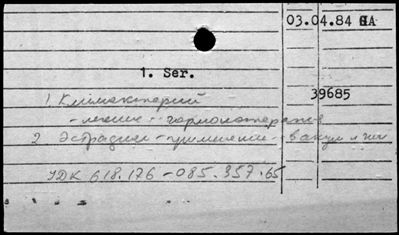 03.04.84 НА
1. Ser.
39685
1. Климактерий
- лечение - гормонотерапия
2 Эстрадиол - применение - в акуш. и гин
УДК 618.176-085.357.65